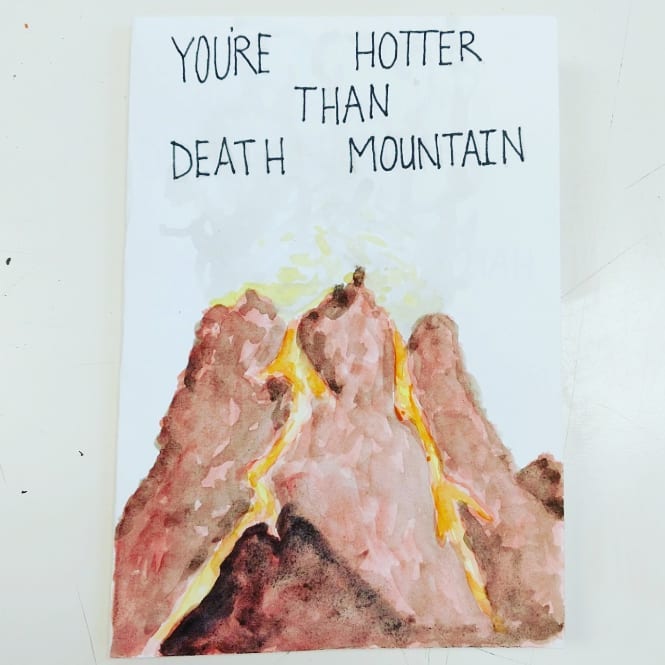 YOU'RE HOTTER
THAN
DEATH MOUNTAIN